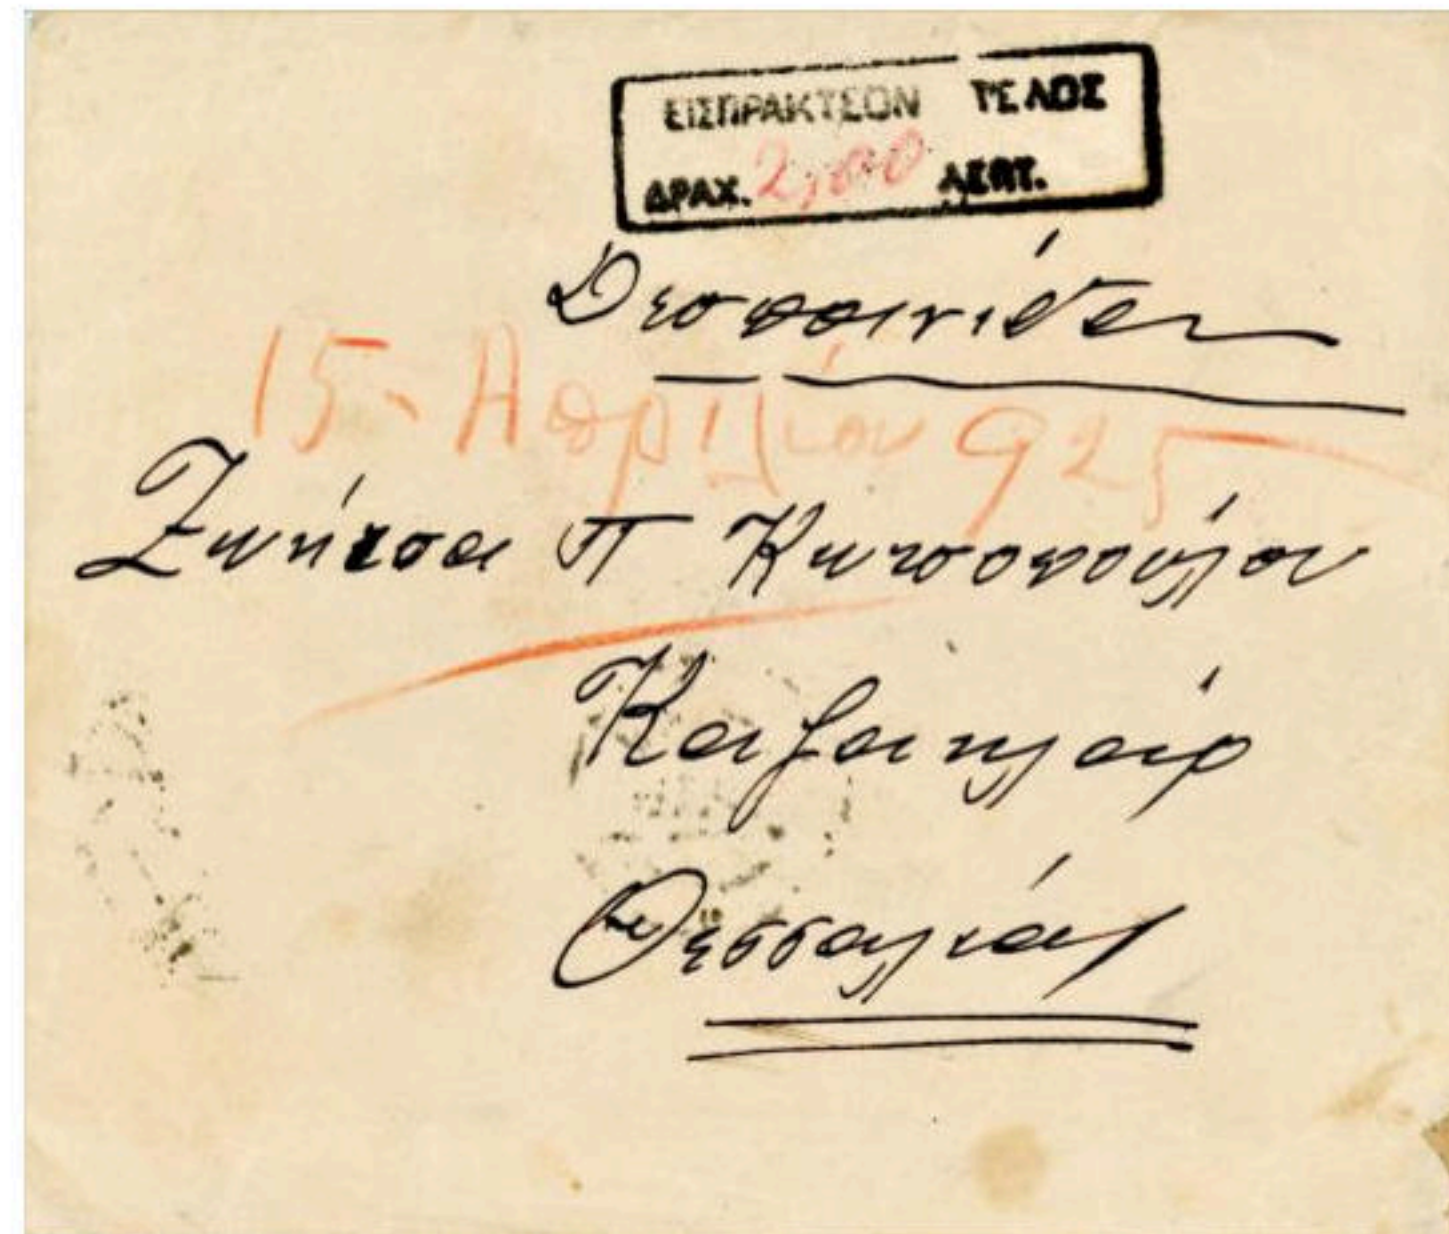 ΕΙΣΠΡΑΚΤΕΟΝ ΤΕΛΟΣ
ΔΡΑΧ. 2,00 ΛΕΠΤ.
Δεσποινίδα
15 - Απριλίου 925
Ζωήτσα Π Κωτσοπούλου
Καζακλάρ
Θεσσαλίας